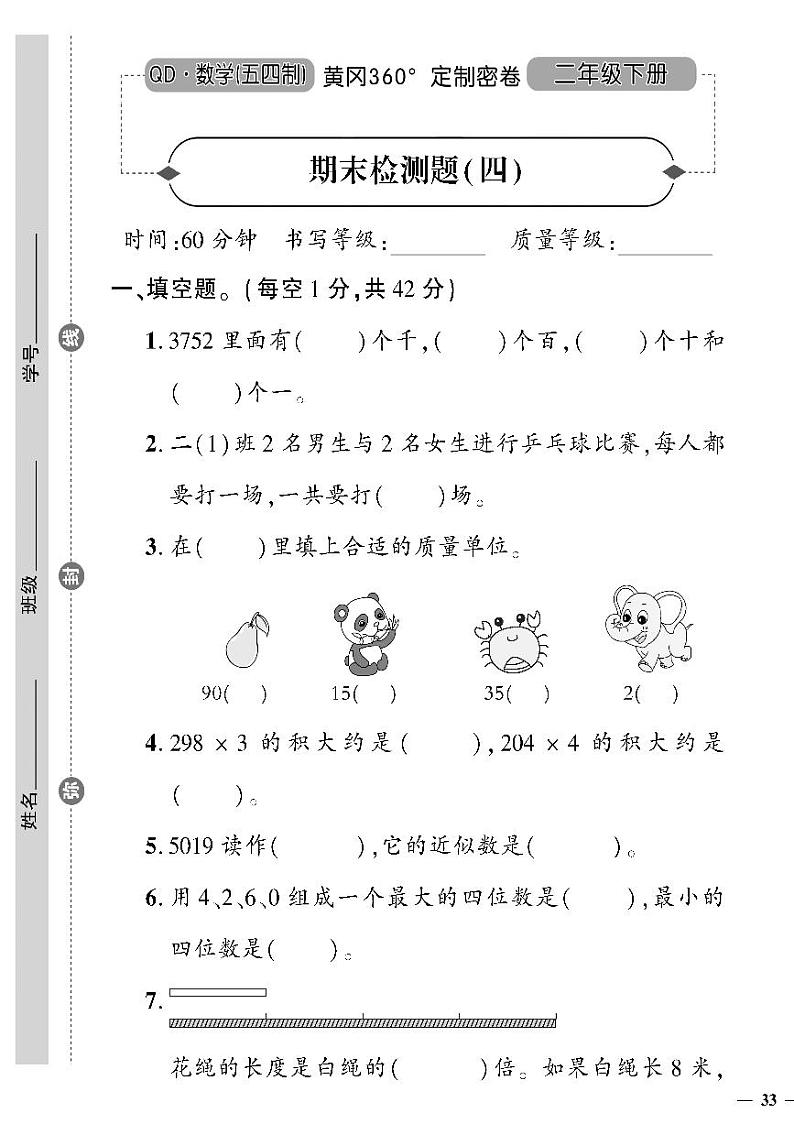 QD·数学(五四制) 黄冈360°定制密卷 二年级下册
期末检测题(四)
时间:60分钟 书写等级:________ 质量等级:________
一、填空题。(每空1分,共42分)
1. 3752里面有( )个千,( )个百,( )个十和
( )个一。
2. 二(1)班2名男生与2名女生进行乒乓球比赛,每人都
要打一场,一共要打( )场。
3. 在( )里填上合适的质量单位。
90( ) 15( ) 35( ) 2( )
4. 298 × 3 的积大约是( ),204 × 4 的积大约是
( )。
5. 5019读作( ),它的近似数是( )。
6. 用4、2、6、0组成一个最大的四位数是( ),最小的
四位数是( )。
7.
花绳的长度是白绳的( )倍。如果白绳长8米,
— 33 —
学号________
班级________
姓名________
线
封
弥